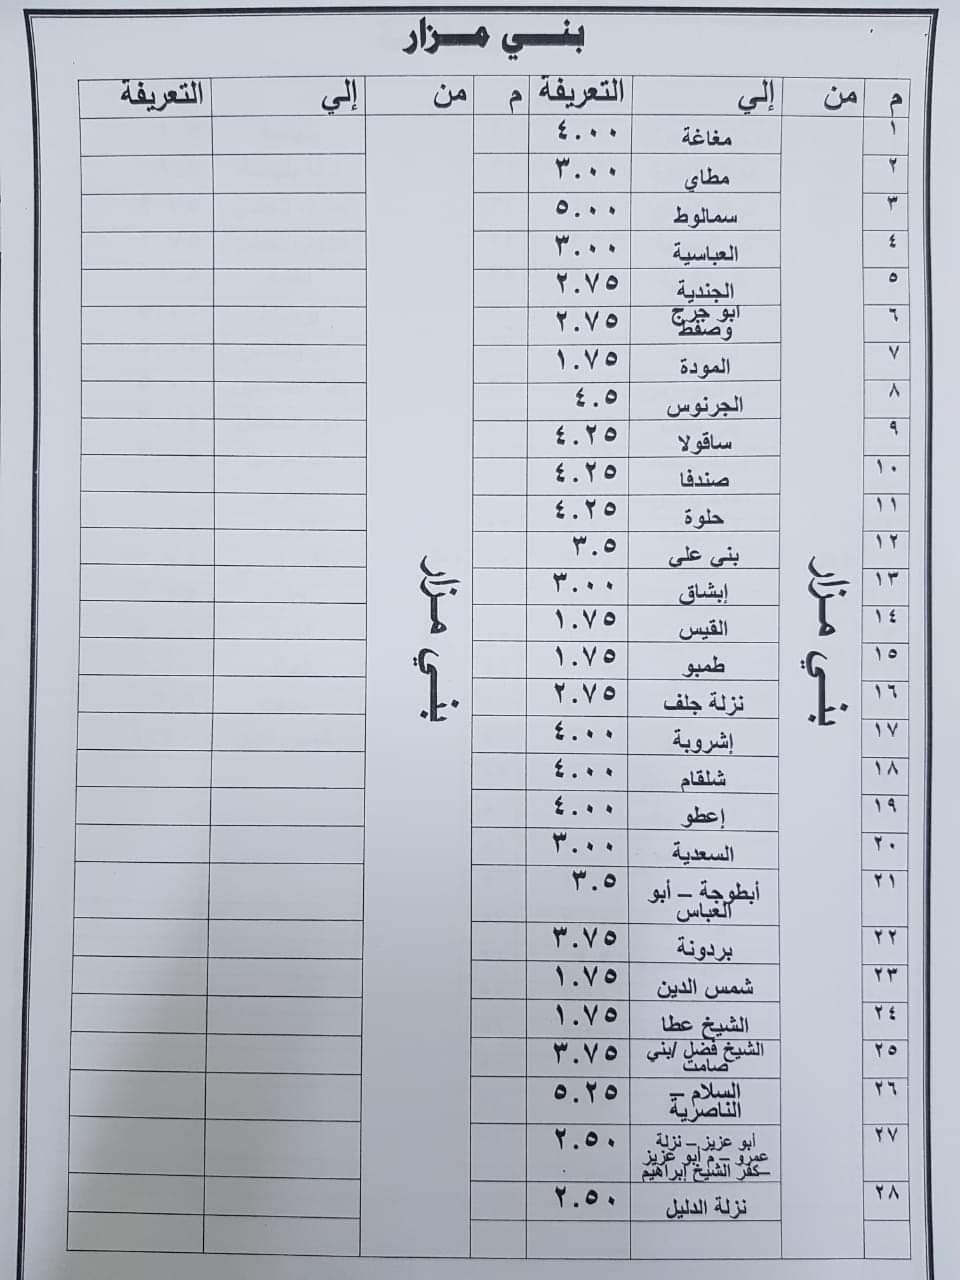 بني مزار
م من إلي التعريفة م من إلي التعريفة
بني مزار
بني مزار
١ مغاغة ٤.٠٠
٢ مطاي ٣.٠٠
٣ سمالوط ٥.٠٠
٤ العباسية ٣.٠٠
٥ الجندية ٢.٧٥
٦ أبو جرج
وصفط ٢.٧٥
٧ المودة ١.٧٥
٨ الجرنوس ٤.٥
٩ ساقولا ٤.٢٥
١٠ صندفا ٤.٢٥
١١ حلوة ٤.٢٥
١٢ بني علي ٣.٥
١٣ إبشاق ٣.٠٠
١٤ القيس ١.٧٥
١٥ طمبو ١.٧٥
١٦ نزلة جلف ٢.٧٥
١٧ إشروبة ٤.٠٠
١٨ شلقام ٤.٠٠
١٩ إعطو ٤.٠٠
٢٠ السعدية ٣.٠٠
٢١ أبطوجة – أبو
العباس ٣.٥
٢٢ بردونة ٣.٧٥
٢٣ شمس الدين ١.٧٥
٢٤ الشيخ عطا ١.٧٥
٢٥ الشيخ فضل /بني
صامت ٣.٧٥
٢٦ السلام –
الناصرية ٥.٢٥
٢٧ أبو عزيز – نزلة
عمرو – م أبو عزيز
–كفر الشيخ إبراهيم ٢.٥٠
٢٨ نزلة الدليل ٢.٥٠